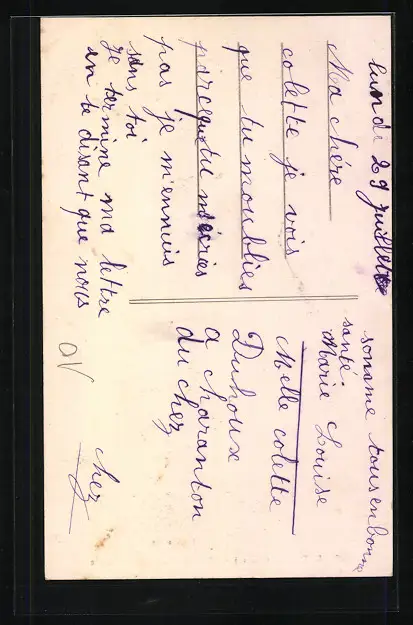 lundi 29 juillet
Ma chére
colette je vois
que tu moublies
parceque tu mécries
pas je m'ennuis
sans toi
je termine ma lettre
en te disant que nous
somme tousenbonne
santé.
Marie Louise
Melle colette
Duhoux
a charanton
du cher
cher